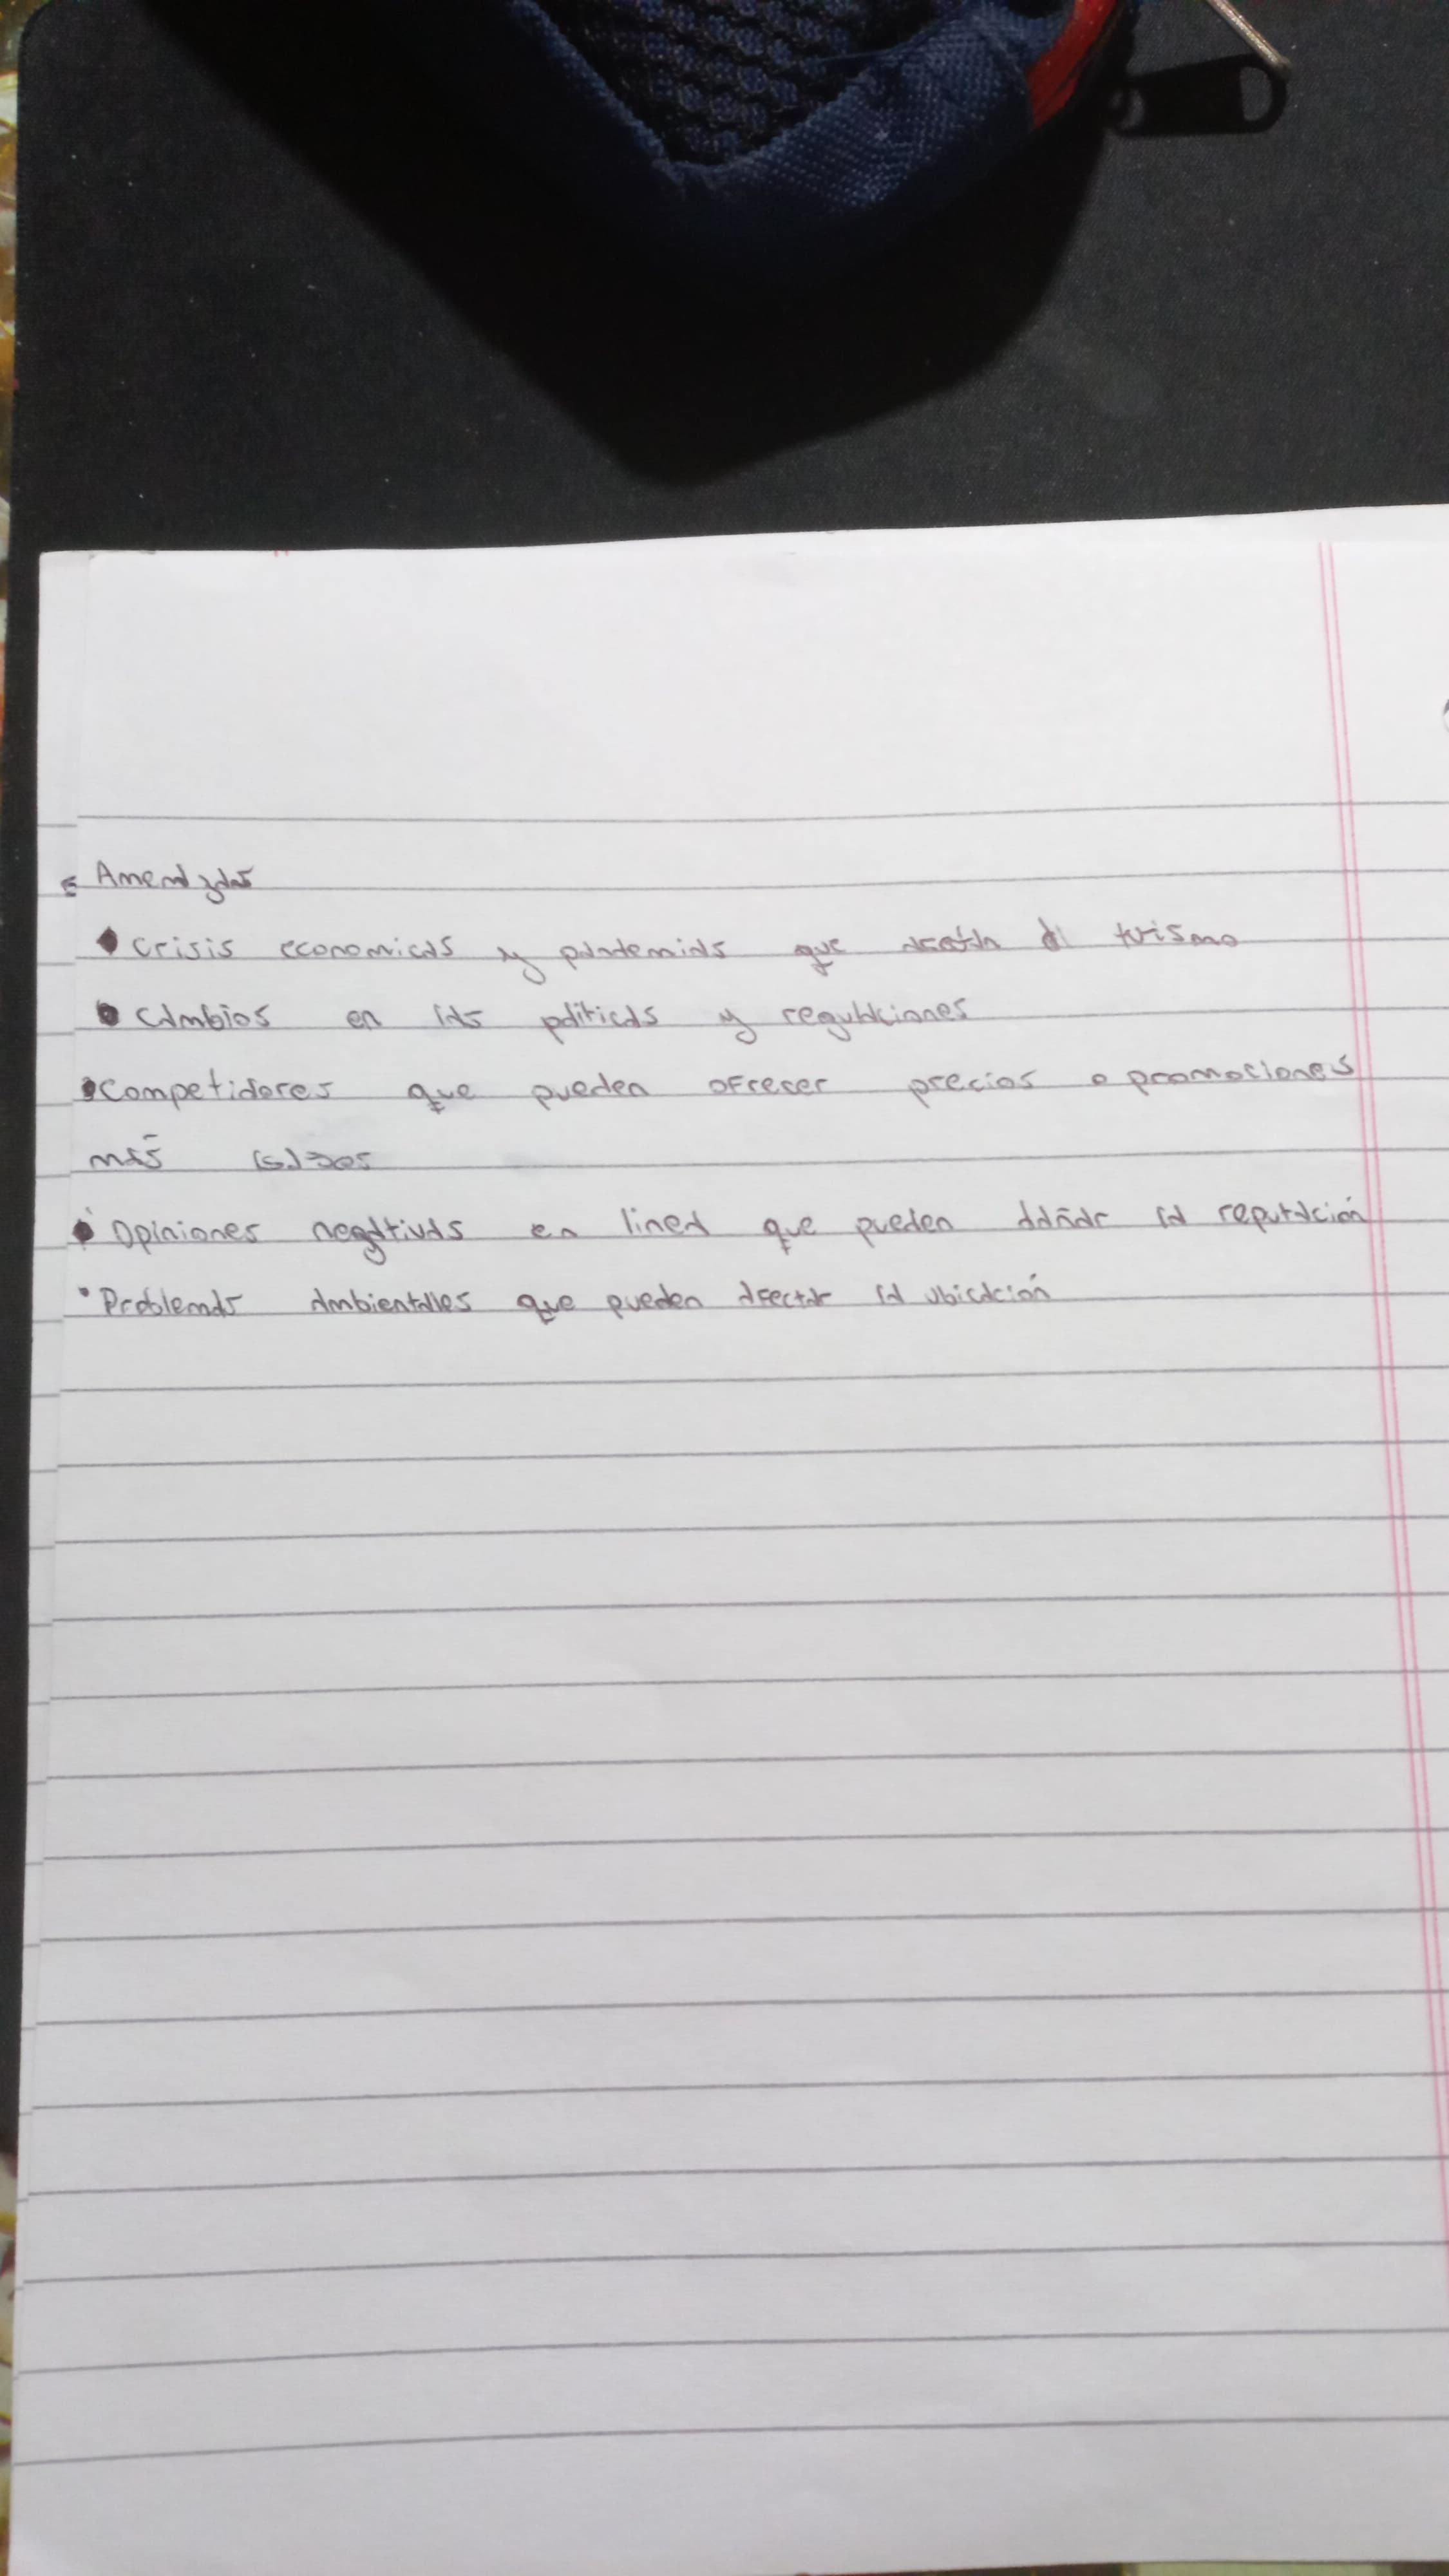 Amenazas
Crisis economicas y pandemias que afectan al turismo
Cambios en las politicas y regulaciones
Competidores que pueden ofrecer precios o promociones
más
Opiniones negativas en linea que pueden dañar la reputación
Problemas ambientales que pueden afectar la ubicación